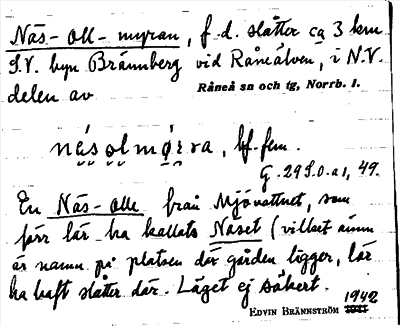 Näs-Oll-myran, f.d. slåtter ca 3 km
S.V. byn Brännberg vid Råneälven, i N.V.
delen av Råneå sn och tg, Norrb. l.
näsolmọrva, bf. fem.
G. 29 S.O-a1, 49.
En Näs-Olle från Mjövattnet, som
förr lär ha kallats Näset (vilket ännu
är namn på platsen där gården ligger, lär
ha haft slåtter där. Läget ej säkert.
EDVIN BRÄNNSTRÖM 1942